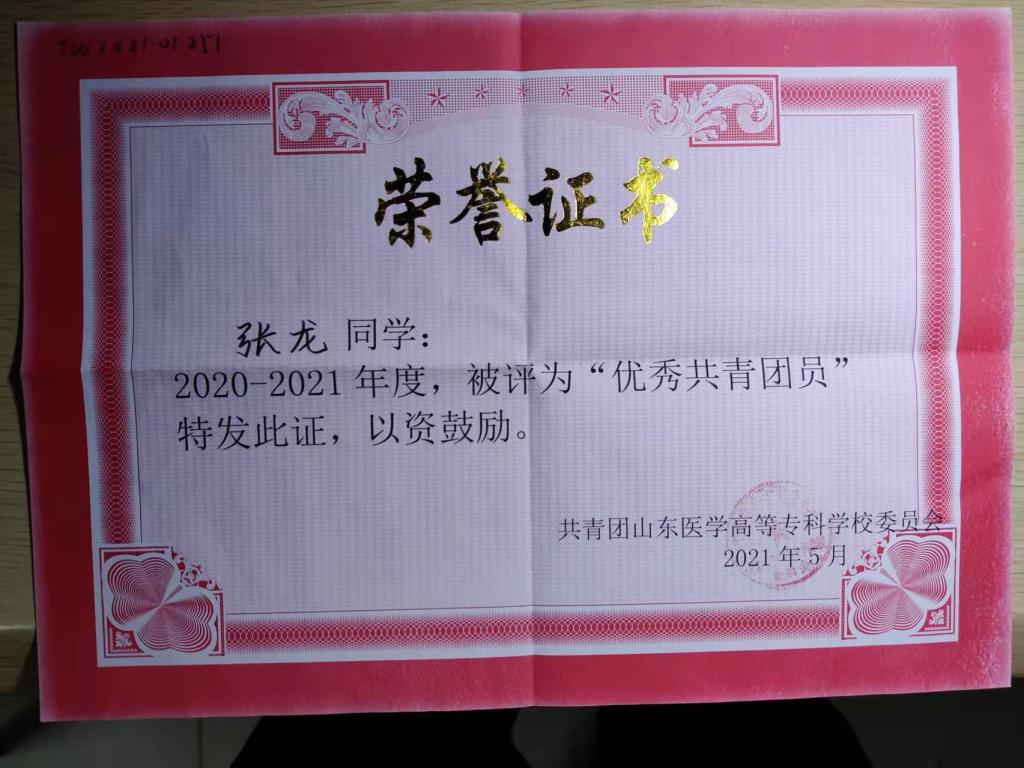 荣誉证书
张龙 同学：
2020-2021 年度，被评为“优秀共青团员”
特发此证，以资鼓励。
共青团山东医学高等专科学校委员会
2021 年 5 月